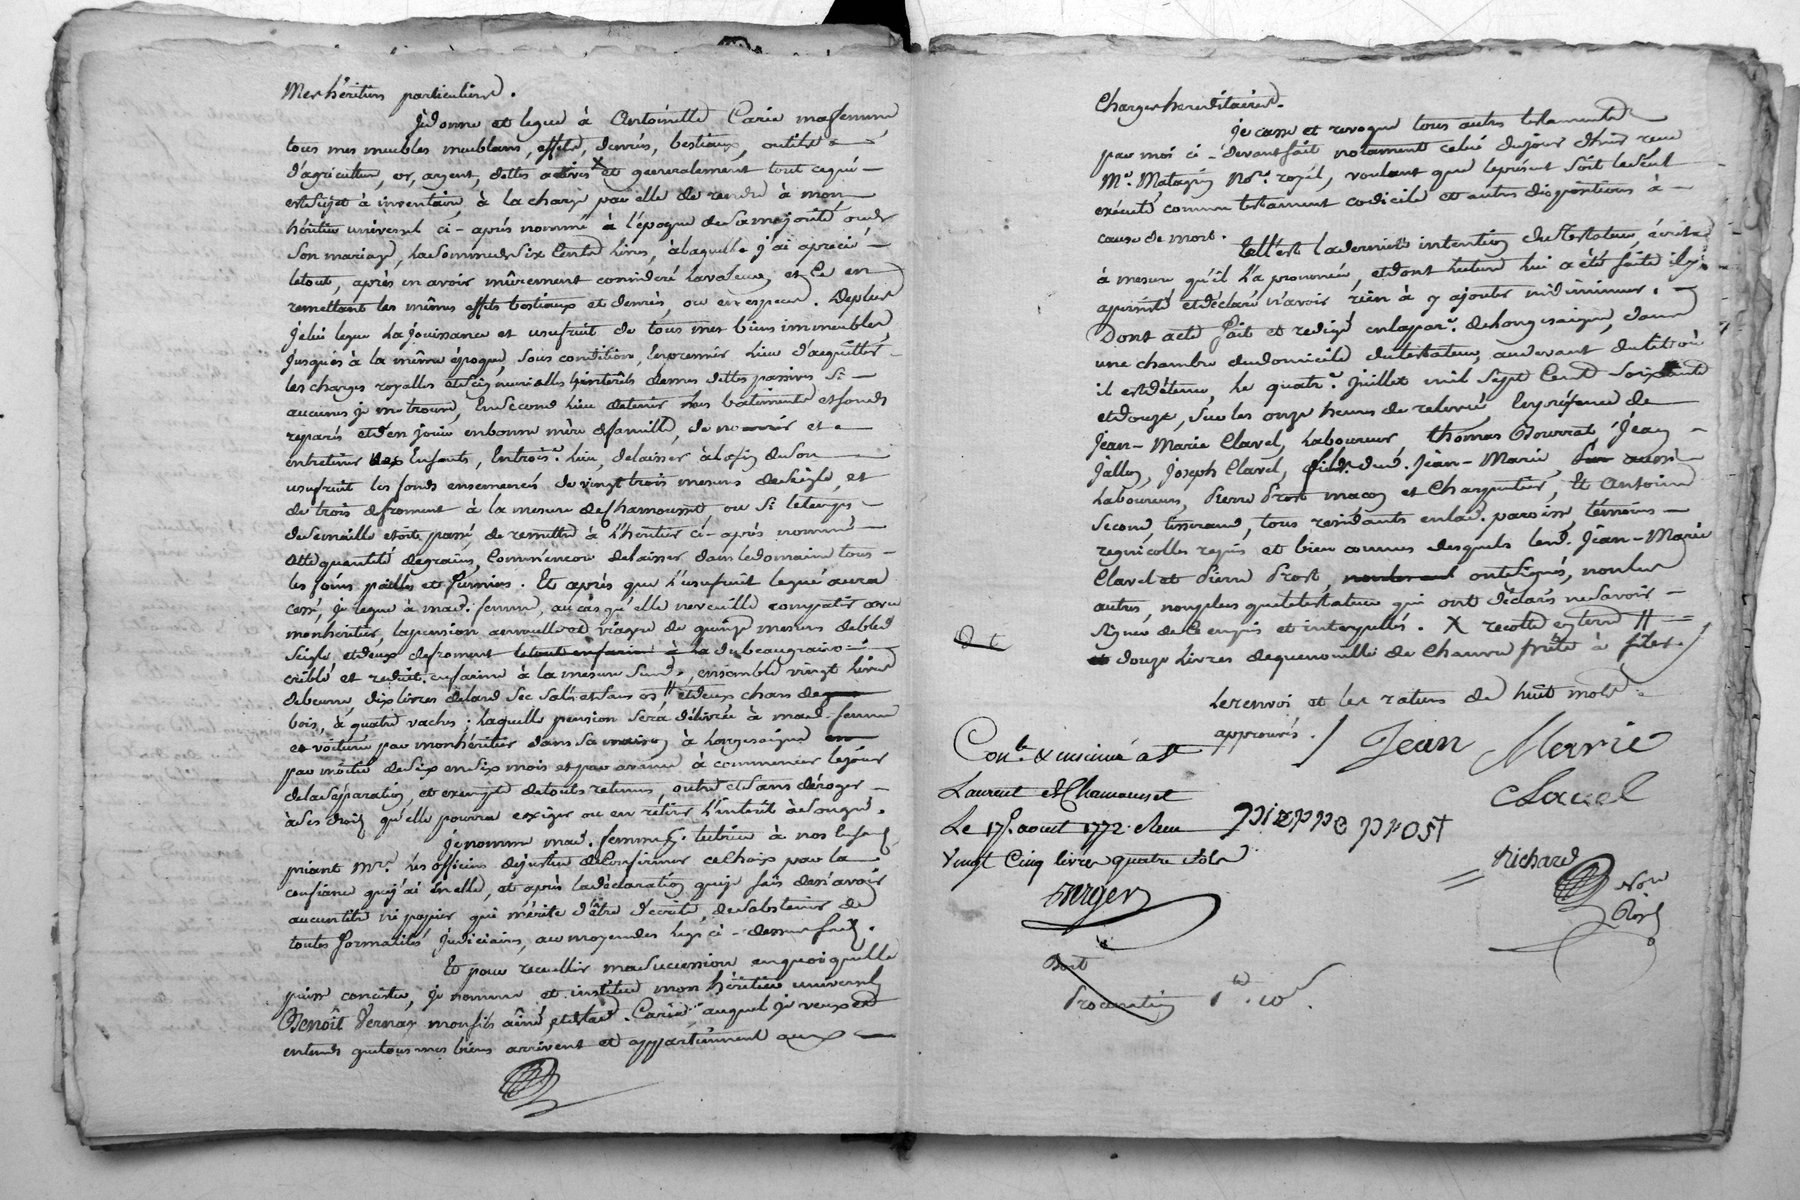 Mes héritiers particuliers.
Je donne et legue à Antoinette Carie ma femme
tous mes meubles meublans, effets, denrés, bestiaux, outils
d'agriculture, or, argent, dettes actives X et generalement tout ce qui
est sujet à inventaire, à la charge par elle de rendre à mon
héritier universel ci-après nommé à l'époque de sa majorité, ou de
son mariage, la somme de six cents livres, à laquelle j'ai aprecié
le tout, après en avoir mûrement consideré la valeur, et ce en
remettant les mêmes effets bestiaux et denrés, ou en especes. De plus
je lui legue la jouissance et usufruit de tous mes biens immeubles,
jusques à la même époque, sous condition, en premier lieu d'acquitter
les charges royalles et seigneurielles & interêts de mes dettes passives si
aucunes je me trouve, en second lieu de tenir les batiments et fonds
reparés et d'en jouir en bonne mère de famille, de nourrir et
entretenir nos enfants, en trois.e lieu, de laisser à la fin de son
usufruit les fonds ensemencés de vingt trois mesures de seigle, et
de trois de froment à la mesure de Chamousset, ou si le temps
de semaille etoit passé, de remettre à l'héritier ci-après nommé
cette quantité de grains, comm'encore de laisser dans le domaine tous
les foins pailles et fumiers. Et après que l'usufruit legué aura
cessé, je legue à mad. femme, au cas qu'elle ne veuille compatir avec
mon héritier, la pension annuelle et viagere de quinze mesures de bled
seigle, et deux de froment le tout en farine à la du beau grain
criblé et reduit en farine à la mesure susd., ensemble vingt livres
de beurre, dix livres de lard sec salé et sans os // et deux chars de
bois, à quatre vaches; laquelle pension sera délivrée à mad. femme
et voiturée par mon héritier dans sa maison à Longesaigne en
par moitié de six en six mois et par avance à commencer le jour
de la séparation, et exempte de touts retenus, outre et sans déroger
à ses droits qu'elle pourra exiger ou en retirer l'interêt à son gré.
Je nomme mad. femme tutrice à nos enfants
priant Mrs. les officiers de justice de confirmer ce choix par la
confiance que j'ai en elle, et après la déclaration que je fais de n'avoir
aucun titre ni papier qui mérite d'être décrits, de s'abstenir de
toutes formalités judiciaires, au moyen des legs ci-dessus faits.
Et pour recueillir ma succession en quoi qu'elle
puisse consister, je nomme et institue mon héritier universel
Benoît Vernay mon fils aîné, et de lad. Carie, auquel je veux et
entends que tous mes biens arrivent et appartiennent aux
charges hereditaires.
Je casse et revoque tous autres testaments
par moi ci-devant fait notament celui du jour d'hier reçu
Me. Matagrin Nore. royal, voulant que le présent soit le seul
executé comme testament codicile et autres dispositions à
cause de mort.
Telle est la derniere intention du testateur, écrite
à mesure qu'il l'a prononcée, et dont lecture lui a été faite il y a
persisté et déclaré n'avoir rien à y ajouter ni diminuer.
Dont acte fait et redigé en la ppar. de Longesaigne, dans
une chambre du domicile du testateur, au devant du lit où
il est détenu, le quatre. juillet mil sept cent soixante
et douze, sur les onze heures de relevée, en présence de
Jean-Marie Clavel, laboureur, thomas Bourrat, Jean
Jallon, Joseph Clavel, fils dud. Jean-Marie, tous aussi
laboureurs, Pierre Prost macon et charpentier, et Antoine
Second, tisserand, tous residants en lad. paroisse, témoins
regnicolles requis et bien connus desquels led. Jean-Marie
Clavel et Pierre Prost, ont signés, non les
autres, non plus que le testateur qui ont déclarés ne savoir
signer de ce enquis et interpellés. X recolte externe //
et douze livres de quenouille de chanvre prête à filer.
Le renvoi et les ratures de huit mots
approuvés. / Jean Marie
Clavel
piεrre prost
Richard
Nore
Royal
Con.lé & insinué à St
Laurent de Chamousset
Le 17e. aout 1772. Reçu
Vingt Cinq livres quatre sols
Procuration